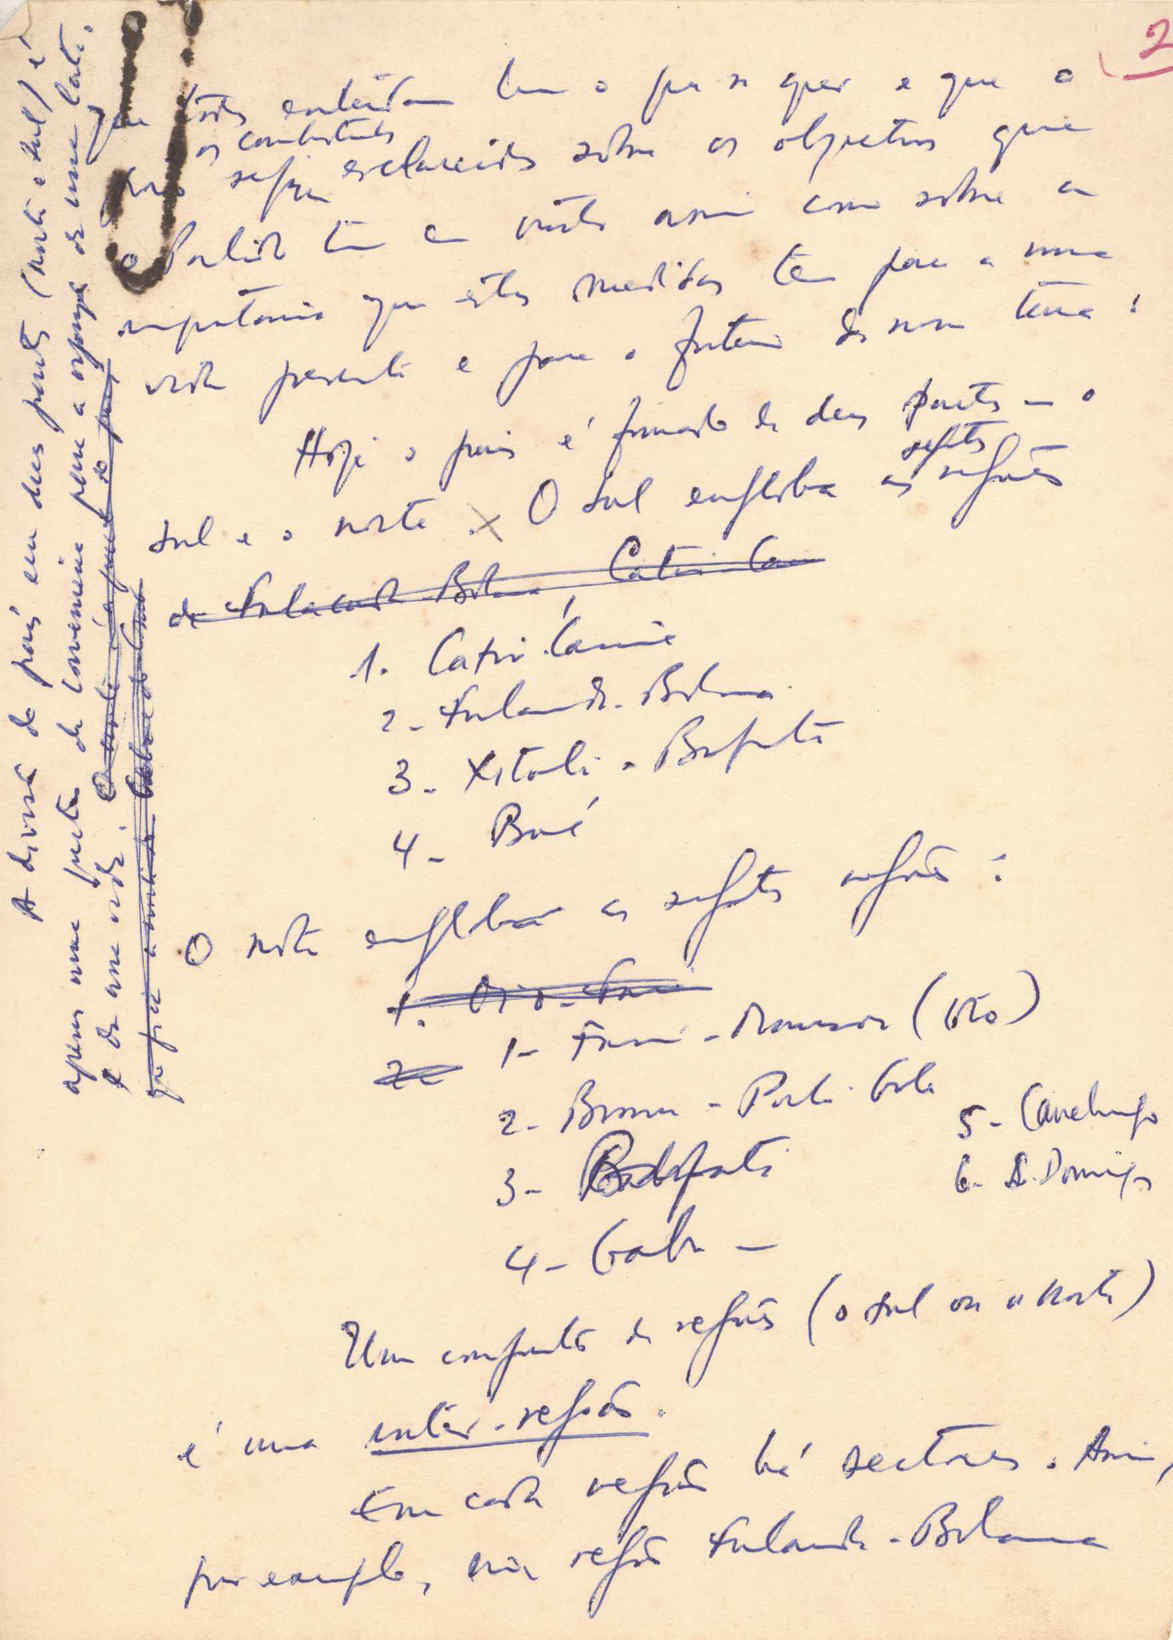 2
que todos entendam bem o que se quer e que o
os combatentes
sejam esclarecidos sobre os objectivos que
o Partido tem em vista assim como sobre a
importancia que estas medidas tem para a nossa
vida presente e para o futuro da nossa terra:
Hoje o pais é formado de duas partes – o
seguintes
sul e o norte. O sul engloba as regiões
de Fulacunda-Bolama, Catió-Com
1. Catió-Comie
2- Fulacunda-Bolama
3- Xitoli-Bafatá
4- Boé
O norte engloba as seguintes regiões:
1. Oio-Farim
2-
1- Farim-Mansoa (Oio)
2- Bissau-
3- Bafatá
4- Gabu –
5- Canchungo
6- S. Domingos
Um conjunto de regiões (o sul ou o norte)
é uma inter-região.
Em cada região há sectores. Assim,
por exemplo, na região Fulacunda-Bolama
A divisão do país em duas partes (norte e sul) é
apenas uma questão de conveniencia para a de uma luta,
e de uma vida. O norte é a parte do país
que fica a norte do